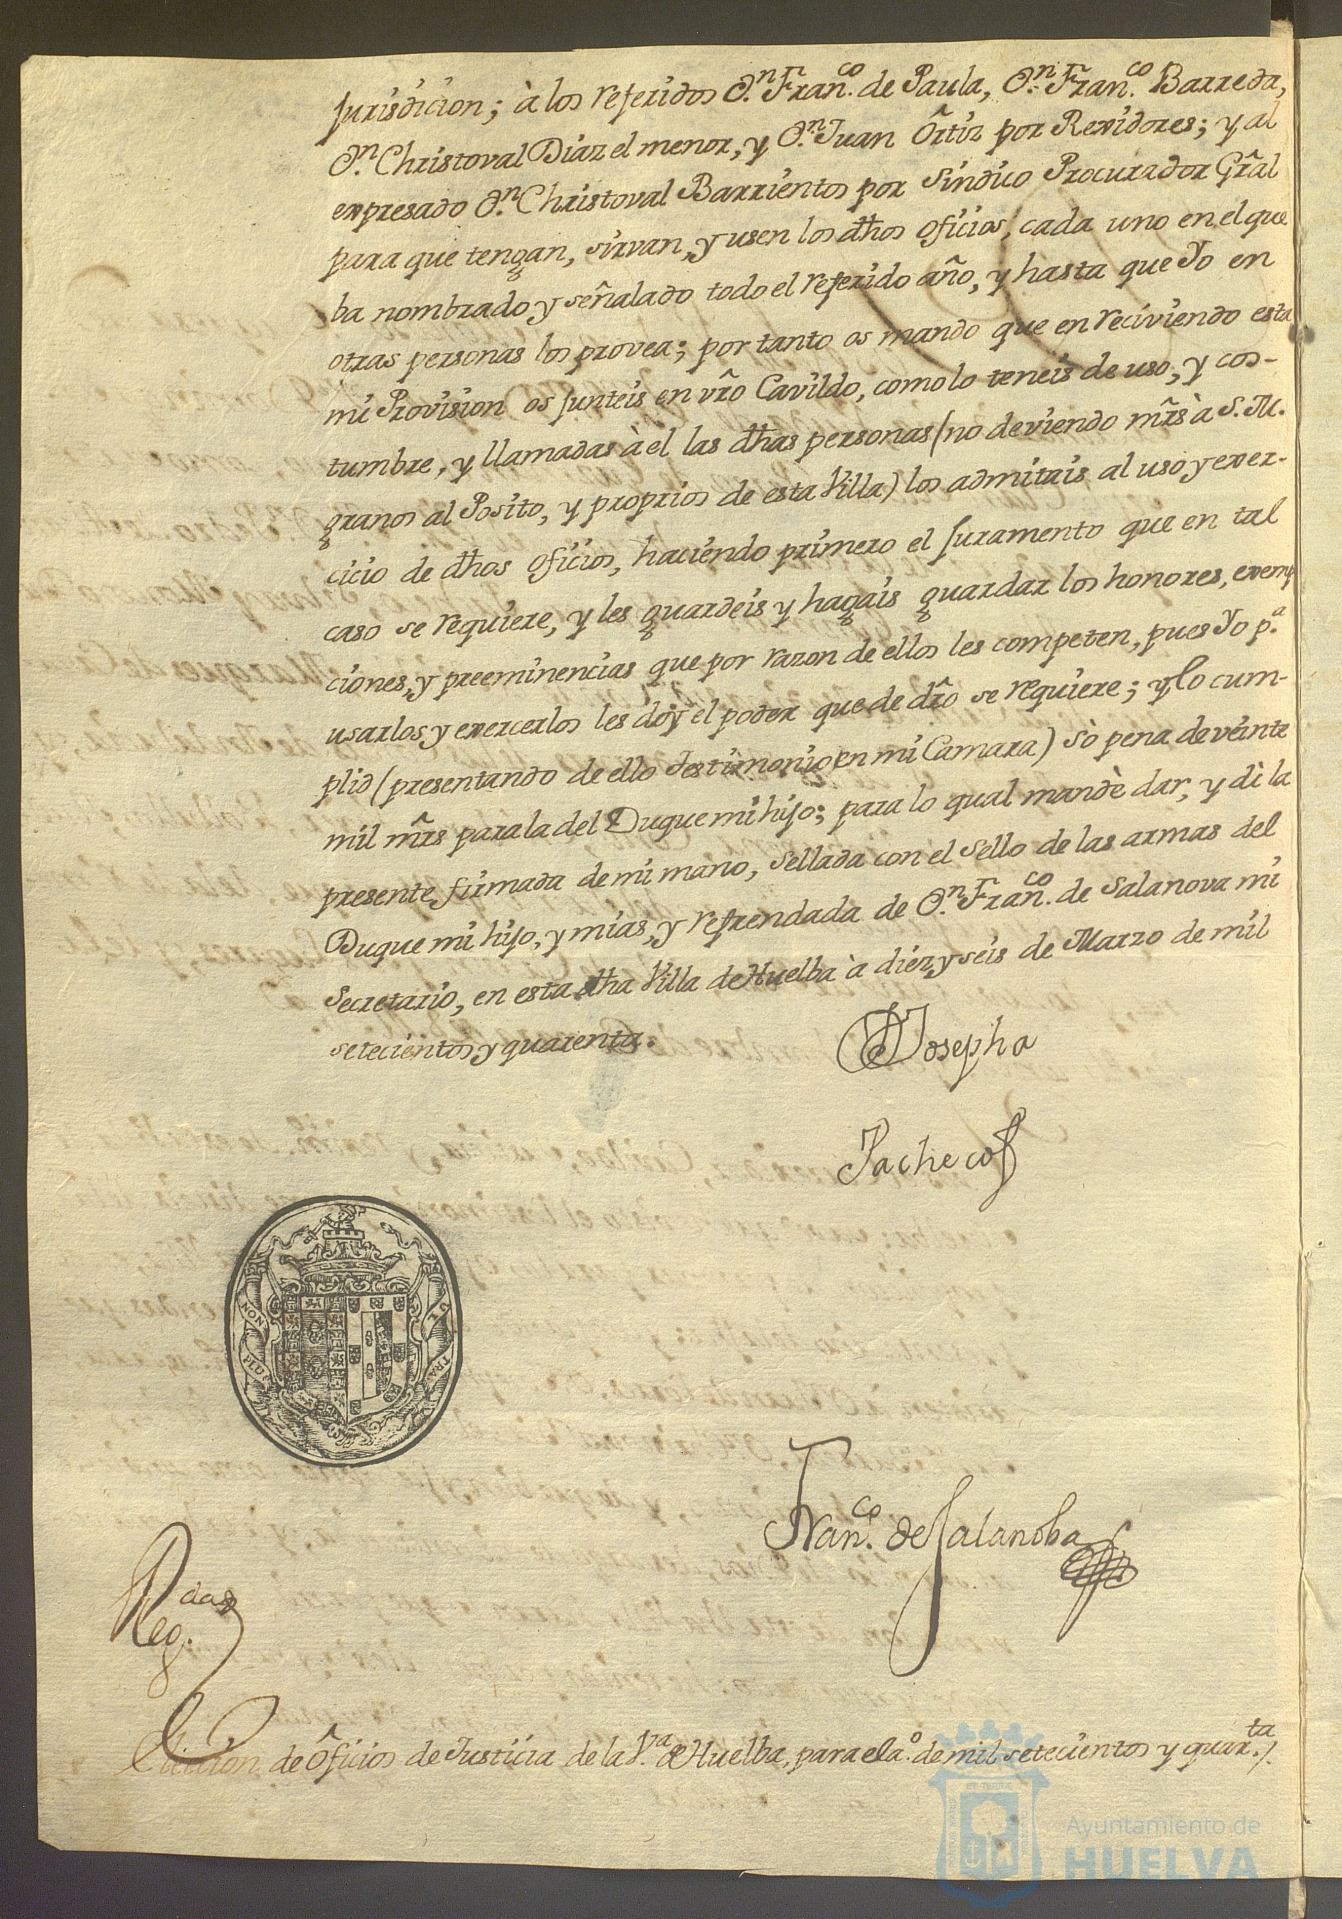 Jurisdicion; à los referidos D.ⁿ Fran.ᶜᵒ de Paula, D.ⁿ Fran.ᶜᵒ Barreda,
D.ⁿ Christoval Diaz el menor, y D.ⁿ Juan Ôrtiz por Rexidores; y al
expresado D.ⁿ Christoval Barrientos por Sindico Procurador Grãl
para que tengan, sirvan, y usen los dhos oficios, cada uno en el que
ba nombrado y señalado todo el referido año, y hasta que Yo en
otras personas los provea; por tanto os mando que en reciviendo esta
mi Provision os junteis en vrõ Cavildo, como lo teneis de uso, y cos-
tumbre, y llamadas à el las dhas personas (no deviendo mr̃s à S. M.
granos al Posito, y proprios de esta Villa) los admitais al uso y exer-
cicio de dhos oficios, haciendo primero el juramento que en tal
caso se requiere, y les guardeis y hagais guardar los honores, exemp
ciones, y preeminencias que por razon de ellos les competen, pues Yo p.ᵃ
usarlos y exercerlos les doy el poder que de dr̃o se requiere; y lo cum-
plid (presentando de ello testimonio en mi Camara) sò pena de veinte
mil mr̃s para la del Duque mi hijo; para lo qual mandè dar, y dì la
presente, firmada de mi mano, sellada con el sello de las armas del
Duque mi hijo, y mias, y refrendada de D.ⁿ Fran.ᶜᵒ de Salanova mi
Secretario, en esta dha Villa de Huelba à diez y seis de Marzo de mil
setecientos y quarenta.
Josepha
Pacheco
NON PLUS ULTRA
Fran.ᶜᵒ de Salanoba
Reg.ᵈᵃˢ
Elicion de Ôficios de Justicia de la V.ᵃ de Huelba, para el a.º de mil setecientos y quar.ᵗᵃ
Ayuntamiento de
HUELVA